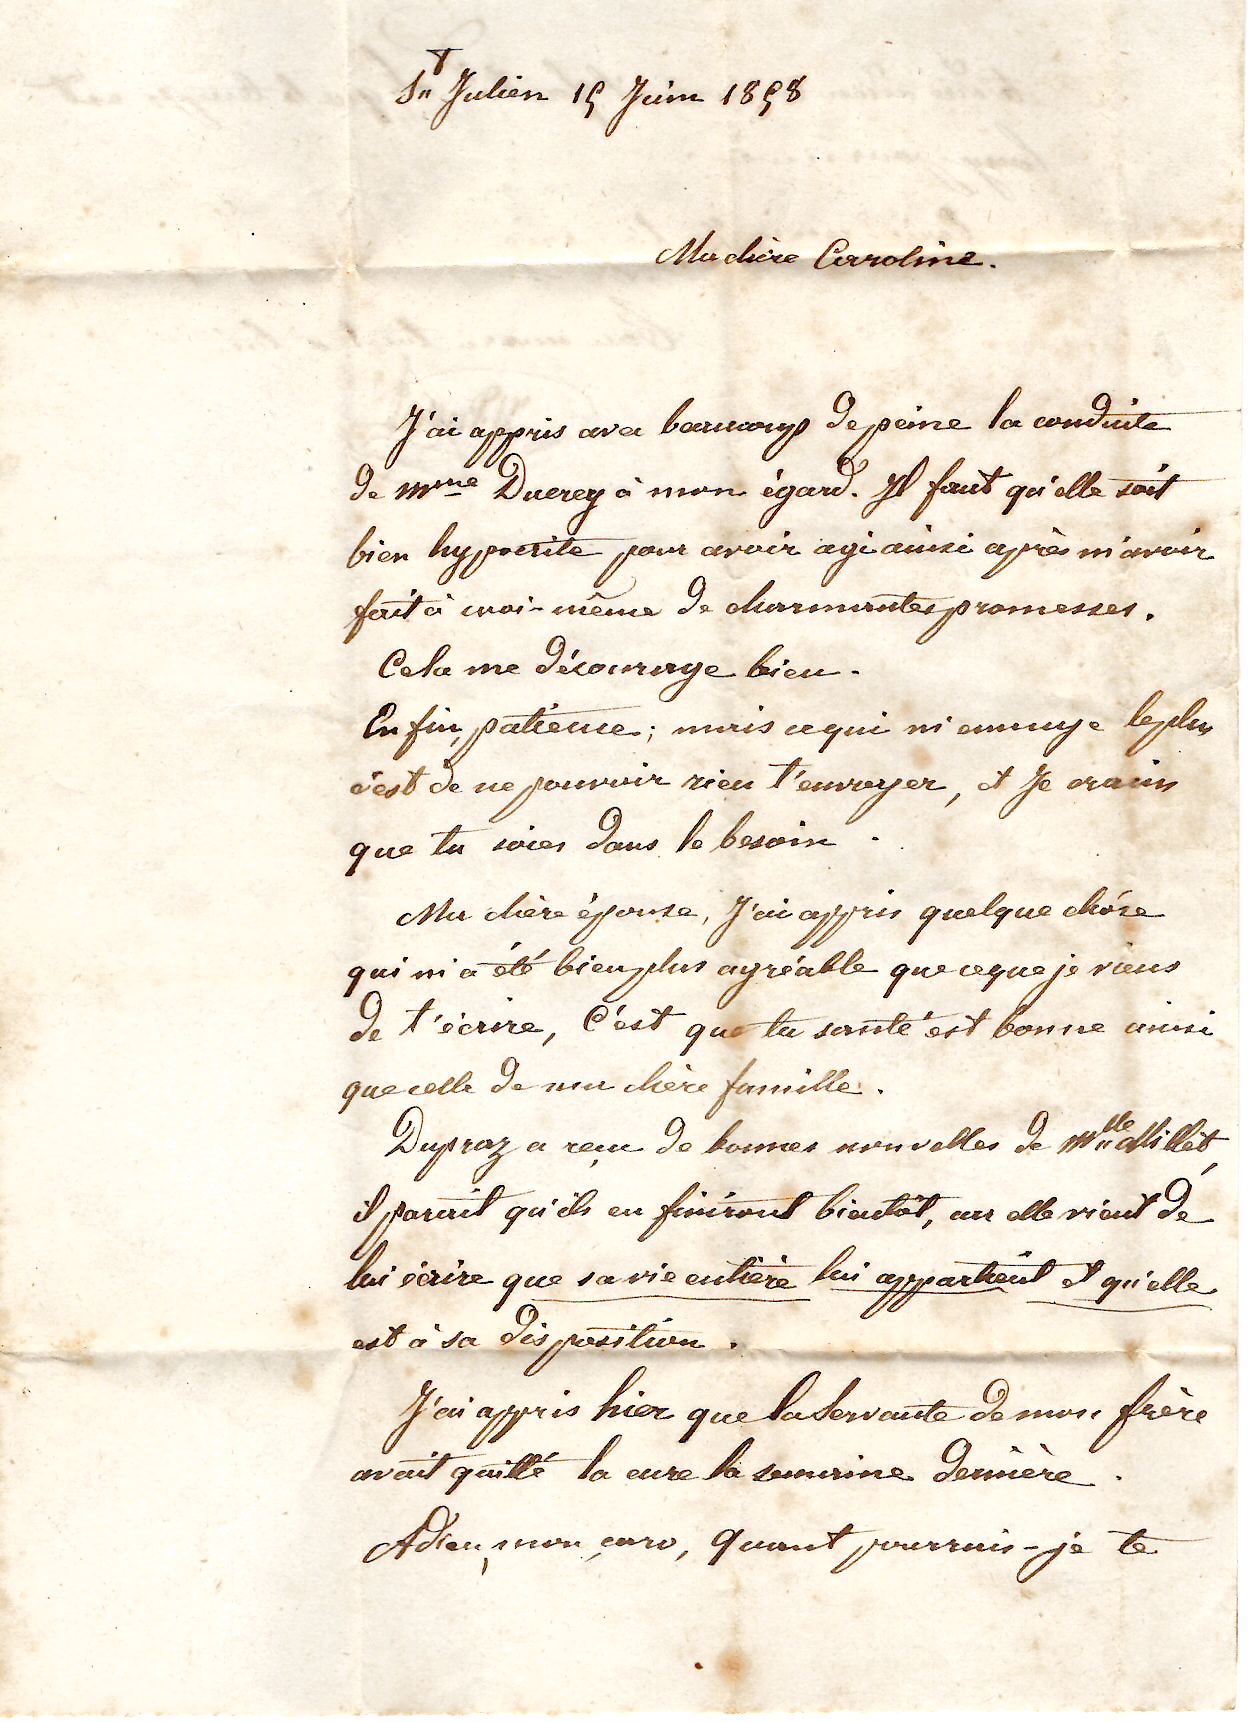 St Julien 15 Juin 1858
Ma chère Caroline.
J'ai appris avec beaucoup de peine la conduite
de Mme Ducrey à mon égard. Il faut qu'elle soit
bien hypocrite pour avoir agi ainsi après m'avoir
fait à moi-même de charmantes promesses.
Cela me décourage bien.
Enfin, patience; mais ce qui m'ennuye le plus
c'est de ne pouvoir rien t'envoyer, et Je crains
que tu soies dans le besoin.
Ma chère épouse, J'ai appris quelque chose
qui m'a été bien plus agréable que ce que je viens
de t'écrire, C'est que ta santé est bonne ainsi
que celle de ma chère famille.
Dupraz a reçu de bonnes nouvelles de Mlle Millet,
il parait qu'ils en finiront bientôt, car elle vient de
lui écrire que sa vie entière lui appartient et qu'elle
est à sa disposition.
J'ai appris hier que la Servante de mon frère
avait quitté la cure la semaine dernière.
Adieu, mon caro, quant pourrais-je te